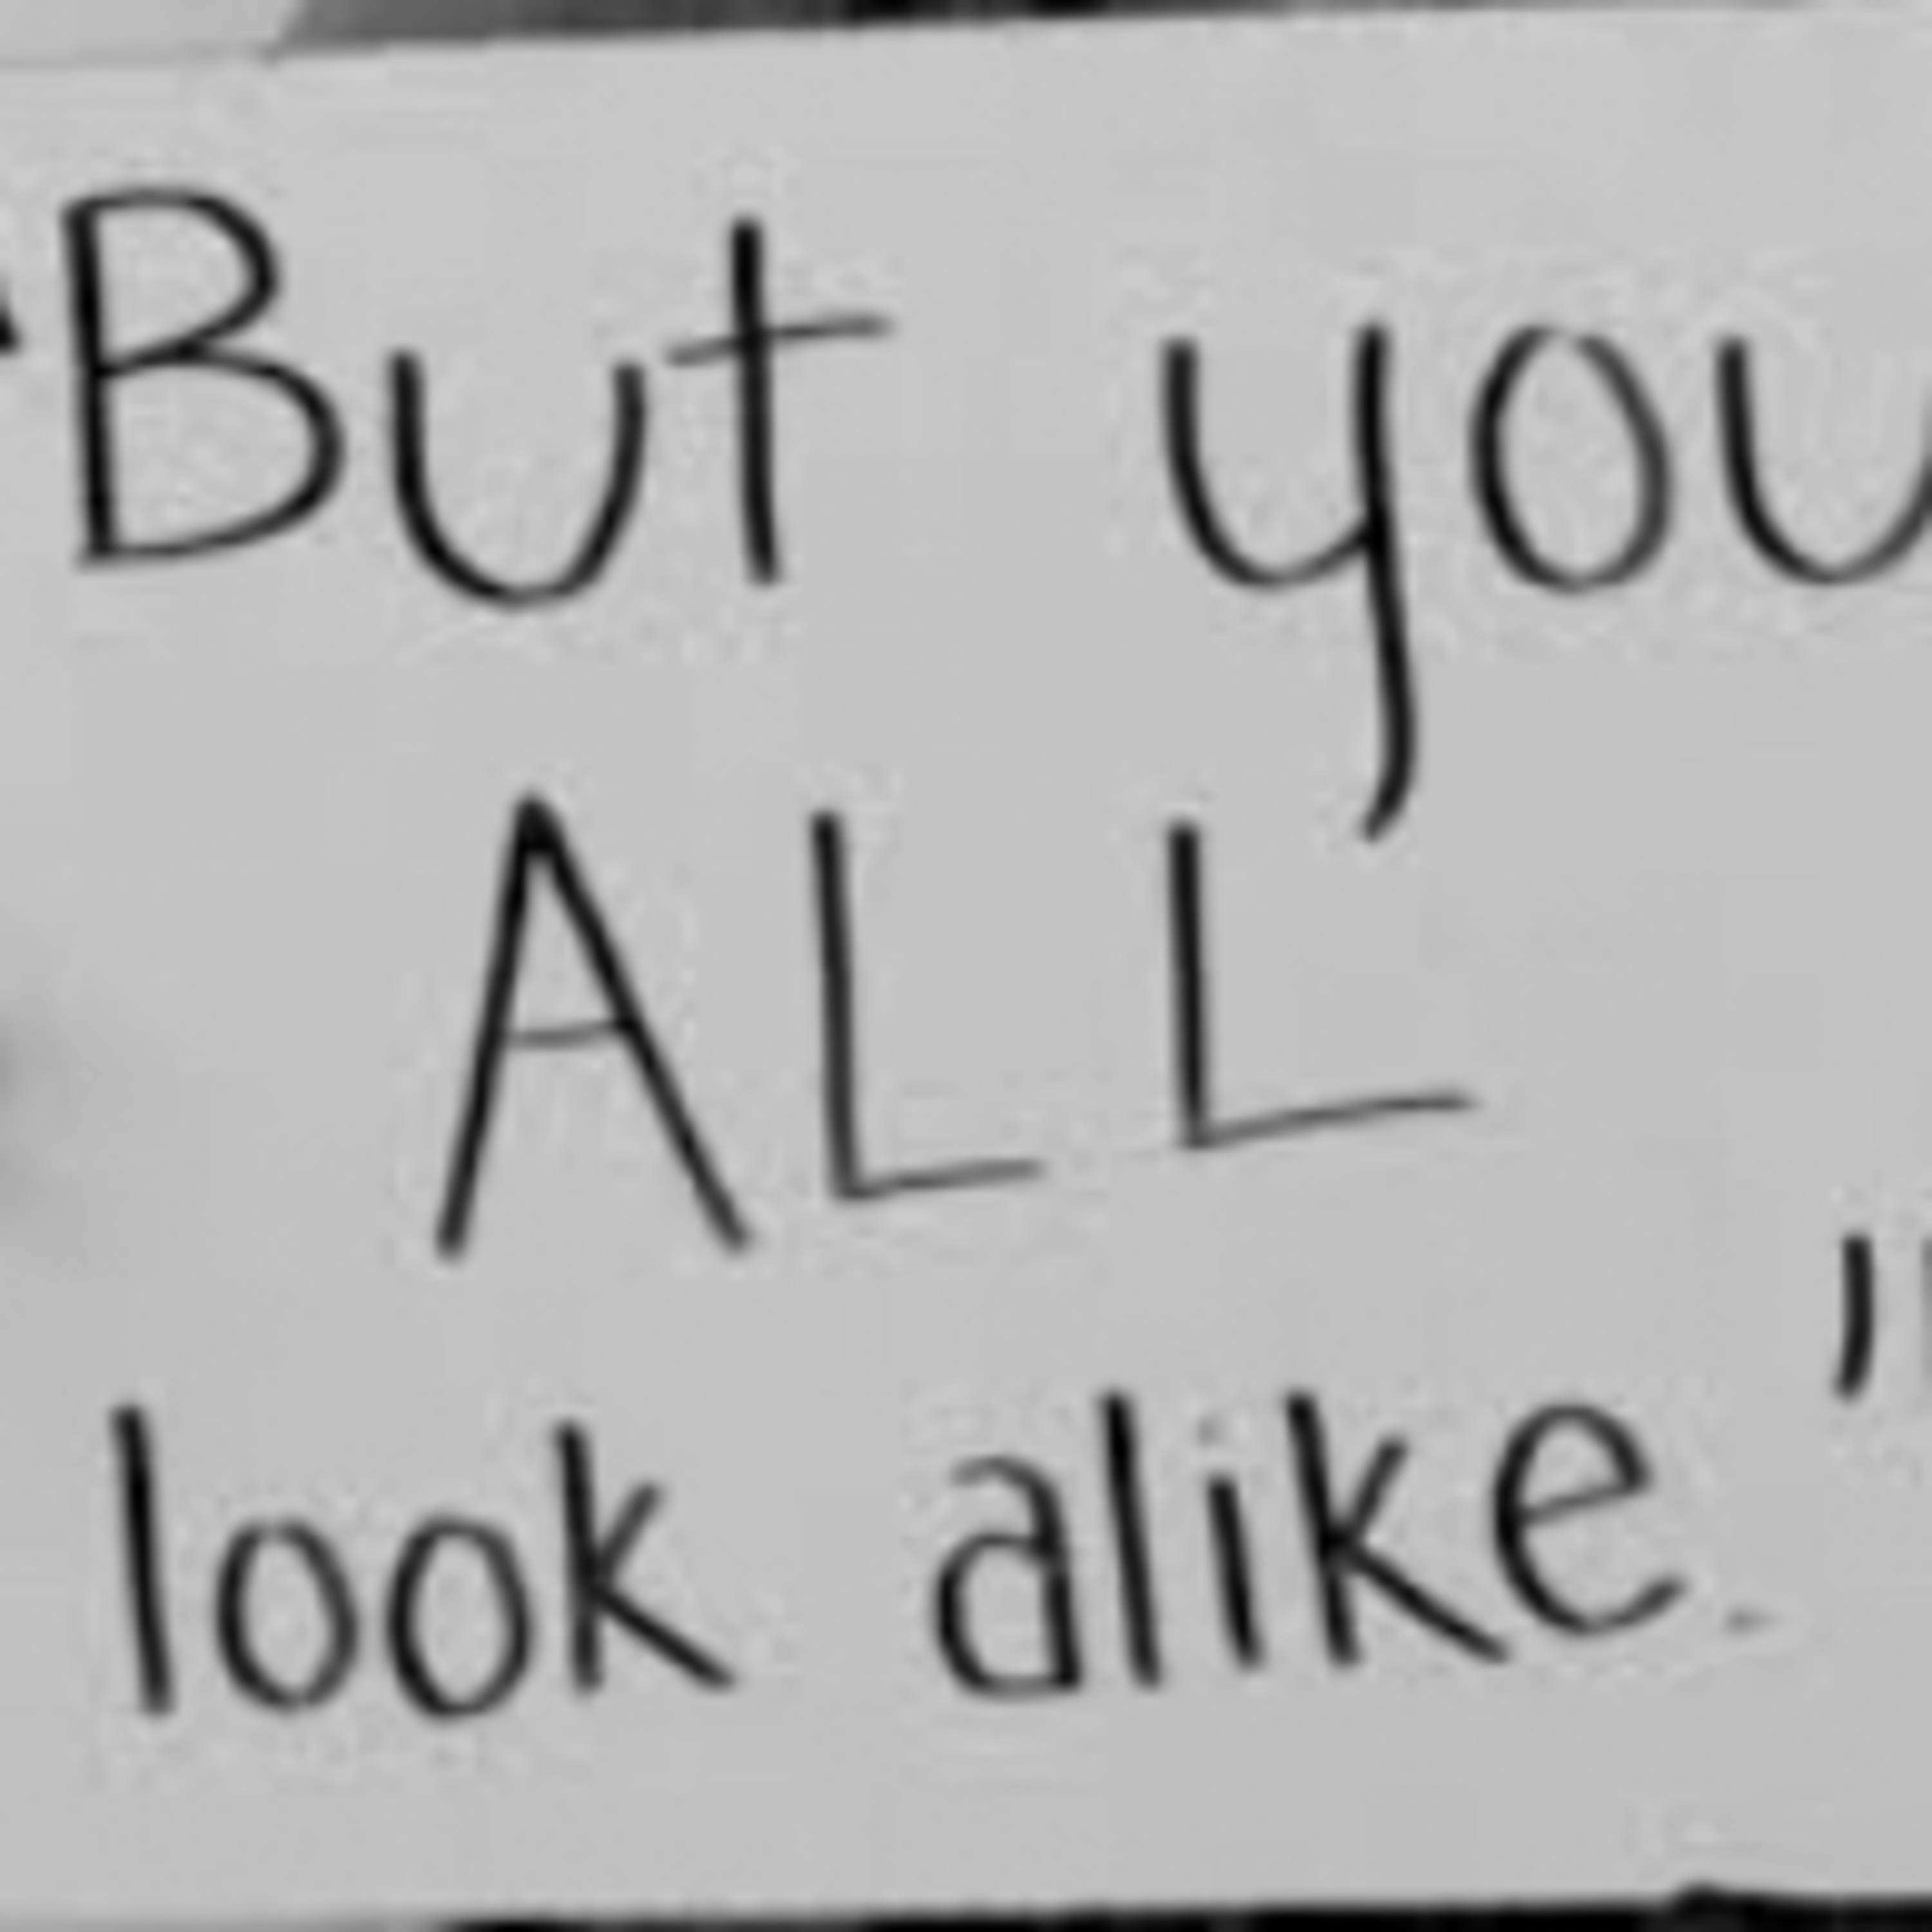 "But you
ALL
look alike."